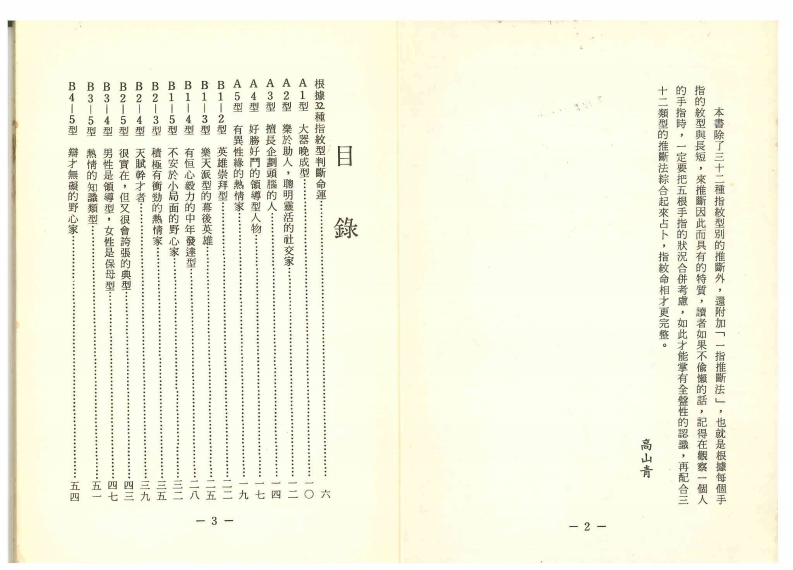 本書除了三十二種指紋型別的推斷外，還附加「一指推斷法」，也就是根據每個手
指的紋型與長短，來推斷因此而具有的特質，讀者如果不偷懶的話，記得在觀察一個人
的手指時，一定要把五根手指的狀況合併考慮，如此才能掌有全盤性的認識，再配合三
十二類型的推斷法綜合起來占卜，指紋命相才更完整。
高山青
— 2 —
目錄
根據32種指紋型判斷命運……六
A1型 大器晚成型……一〇
A2型 樂於助人，聰明靈活的社交家……一二
A3型 擅長企劃頭腦的人……一四
A4型 好勝好鬥的領導型人物……一七
A5型 有異性緣的熱情家……一九
B1－2型 英雄崇拜型……二二
B1－3型 樂天派型的幕後英雄……二五
B1－4型 有恒心毅力的中年發達型……二八
B1－5型 不安於小局面的野心家……三二
B2－3型 積極有衝勁的熱情家……三五
B2－4型 天賦幹才者……三九
B2－5型 很實在，但又很會誇張的典型……四三
B3－4型 男性是領導型，女性是保母型……四七
B3－5型 熱情的知識類型……五一
B4－5型 辯才無礙的野心家……五四
— 3 —